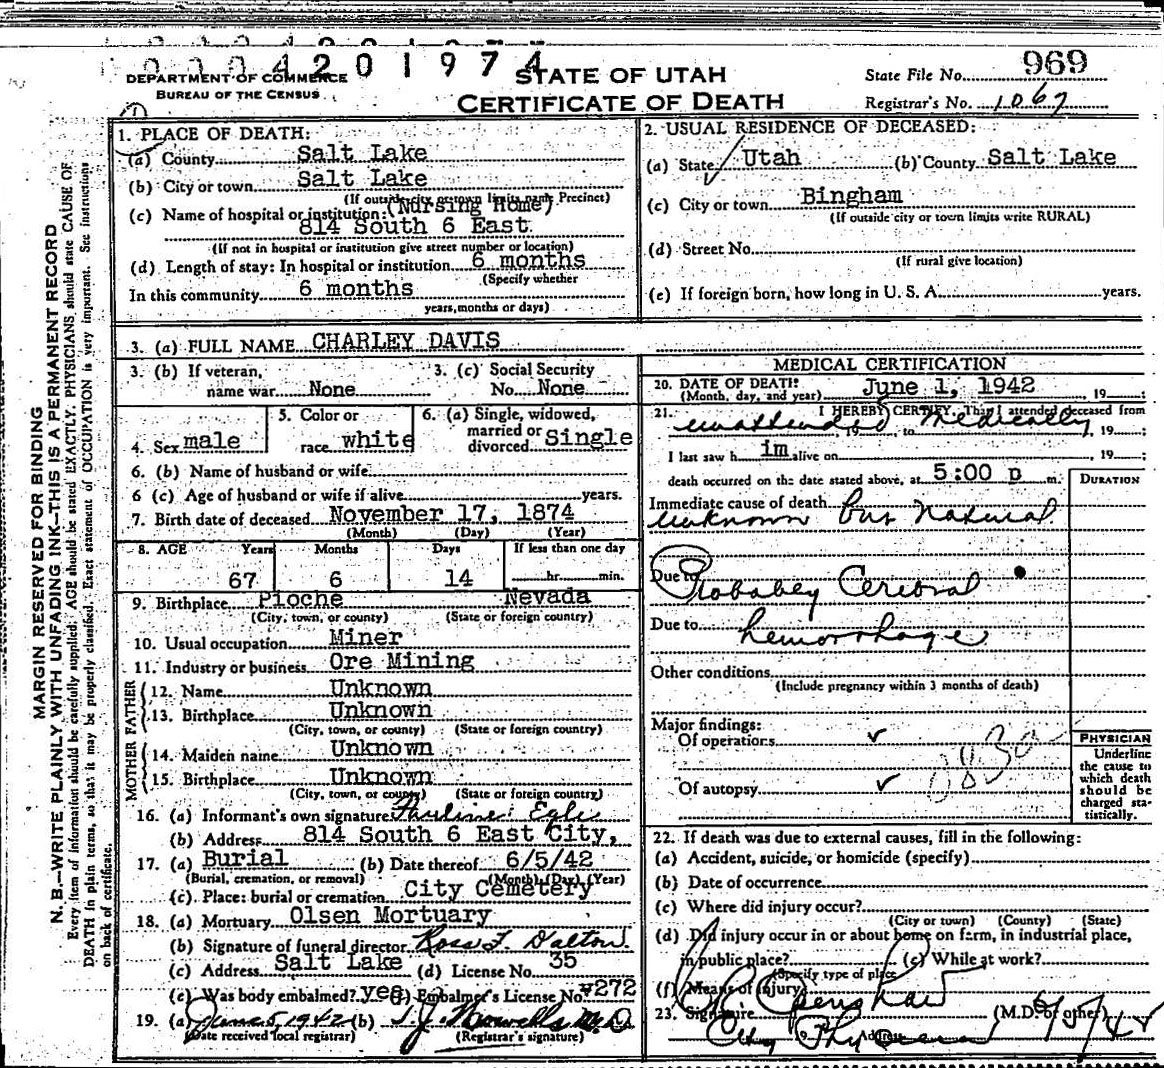 0004201974
DEPARTMENT OF COMMERCE
BUREAU OF THE CENSUS
STATE OF UTAH
CERTIFICATE OF DEATH
State File No. 969
Registrar's No. 1067
MARGIN RESERVED FOR BINDING
N. B.—WRITE PLAINLY WITH UNFADING INK—THIS IS A PERMANENT RECORD
Every item of information should be carefully supplied. AGE should be stated EXACTLY. PHYSICIANS should state CAUSE OF
DEATH in plain terms, so that it may be properly classified. Exact statement of OCCUPATION is very important. See instructions
on back of certificate.
1. PLACE OF DEATH:
(a) County Salt Lake
(b) City or town Salt Lake
(If outside city or town limits name Precinct)
(c) Name of hospital or institution: (Nursing Home)
814 South 6 East
(If not in hospital or institution give street number or location)
(d) Length of stay: In hospital or institution 6 months
(Specify whether
In this community 6 months
years, months or days)
2. USUAL RESIDENCE OF DECEASED:
(a) State Utah (b) County Salt Lake
(c) City or town Bingham
(If outside city or town limits write RURAL)
(d) Street No.
(If rural give location)
(e) If foreign born, how long in U. S. A. years.
3. (a) FULL NAME CHARLEY DAVIS
3. (b) If veteran, name war None
3. (c) Social Security No. None
4. Sex male
5. Color or race white
6. (a) Single, widowed, married or divorced Single
6. (b) Name of husband or wife
6 (c) Age of husband or wife if alive years.
7. Birth date of deceased November 17, 1874
(Month) (Day) (Year)
8. AGE Years Months Days If less than one day
67 6 14 hr. min.
9. Birthplace Pioche Nevada
(City, town, or county) (State or foreign country)
10. Usual occupation Miner
11. Industry or business Ore Mining
FATHER
12. Name Unknown
13. Birthplace Unknown
(City, town, or county) (State or foreign country)
MOTHER
14. Maiden name Unknown
15. Birthplace Unknown
(City, town, or county) (State or foreign country)
16. (a) Informant's own signature Pauline Egli
(b) Address 814 South 6 East City,
17. (a) Burial (b) Date thereof 6/5/42
(Burial, cremation, or removal) (Month) (Day) (Year)
(c) Place: burial or cremation City Cemetery
18. (a) Mortuary Olsen Mortuary
(b) Signature of funeral director Ross F. Dalton
(c) Address Salt Lake (d) License No. 35
(e) Was body embalmed? yes (f) Embalmer's License No. 272
19. (a) June 5, 1942 (b) M.D.
(Date received local registrar) (Registrar's signature)
MEDICAL CERTIFICATION
20. DATE OF DEATH: June 1, 1942, 19
(Month, day, and year)
21. I HEREBY CERTIFY, That I attended deceased from
unattended, 19 to medically, 19 ;
I last saw h im alive on , 19 ;
death occurred on the date stated above, at 5:00 p m.
DURATION
Immediate cause of death
unknown but natural
Due to Probabley Cerebral
Due to hemorrhage
Other conditions
(Include pregnancy within 3 months of death)
Major findings:
Of operations
Of autopsy
PHYSICIAN
Underline
the cause to
which death
should be
charged sta-
tistically.
22. If death was due to external causes, fill in the following:
(a) Accident, suicide, or homicide (specify)
(b) Date of occurrence
(c) Where did injury occur?
(City or town) (County) (State)
(d) Did injury occur in or about home on farm, in industrial place,
in public place? (e) While at work?
(Specify type of place)
(f) Means of injury
23. Signature (M.D. or other)
City Physician
Address